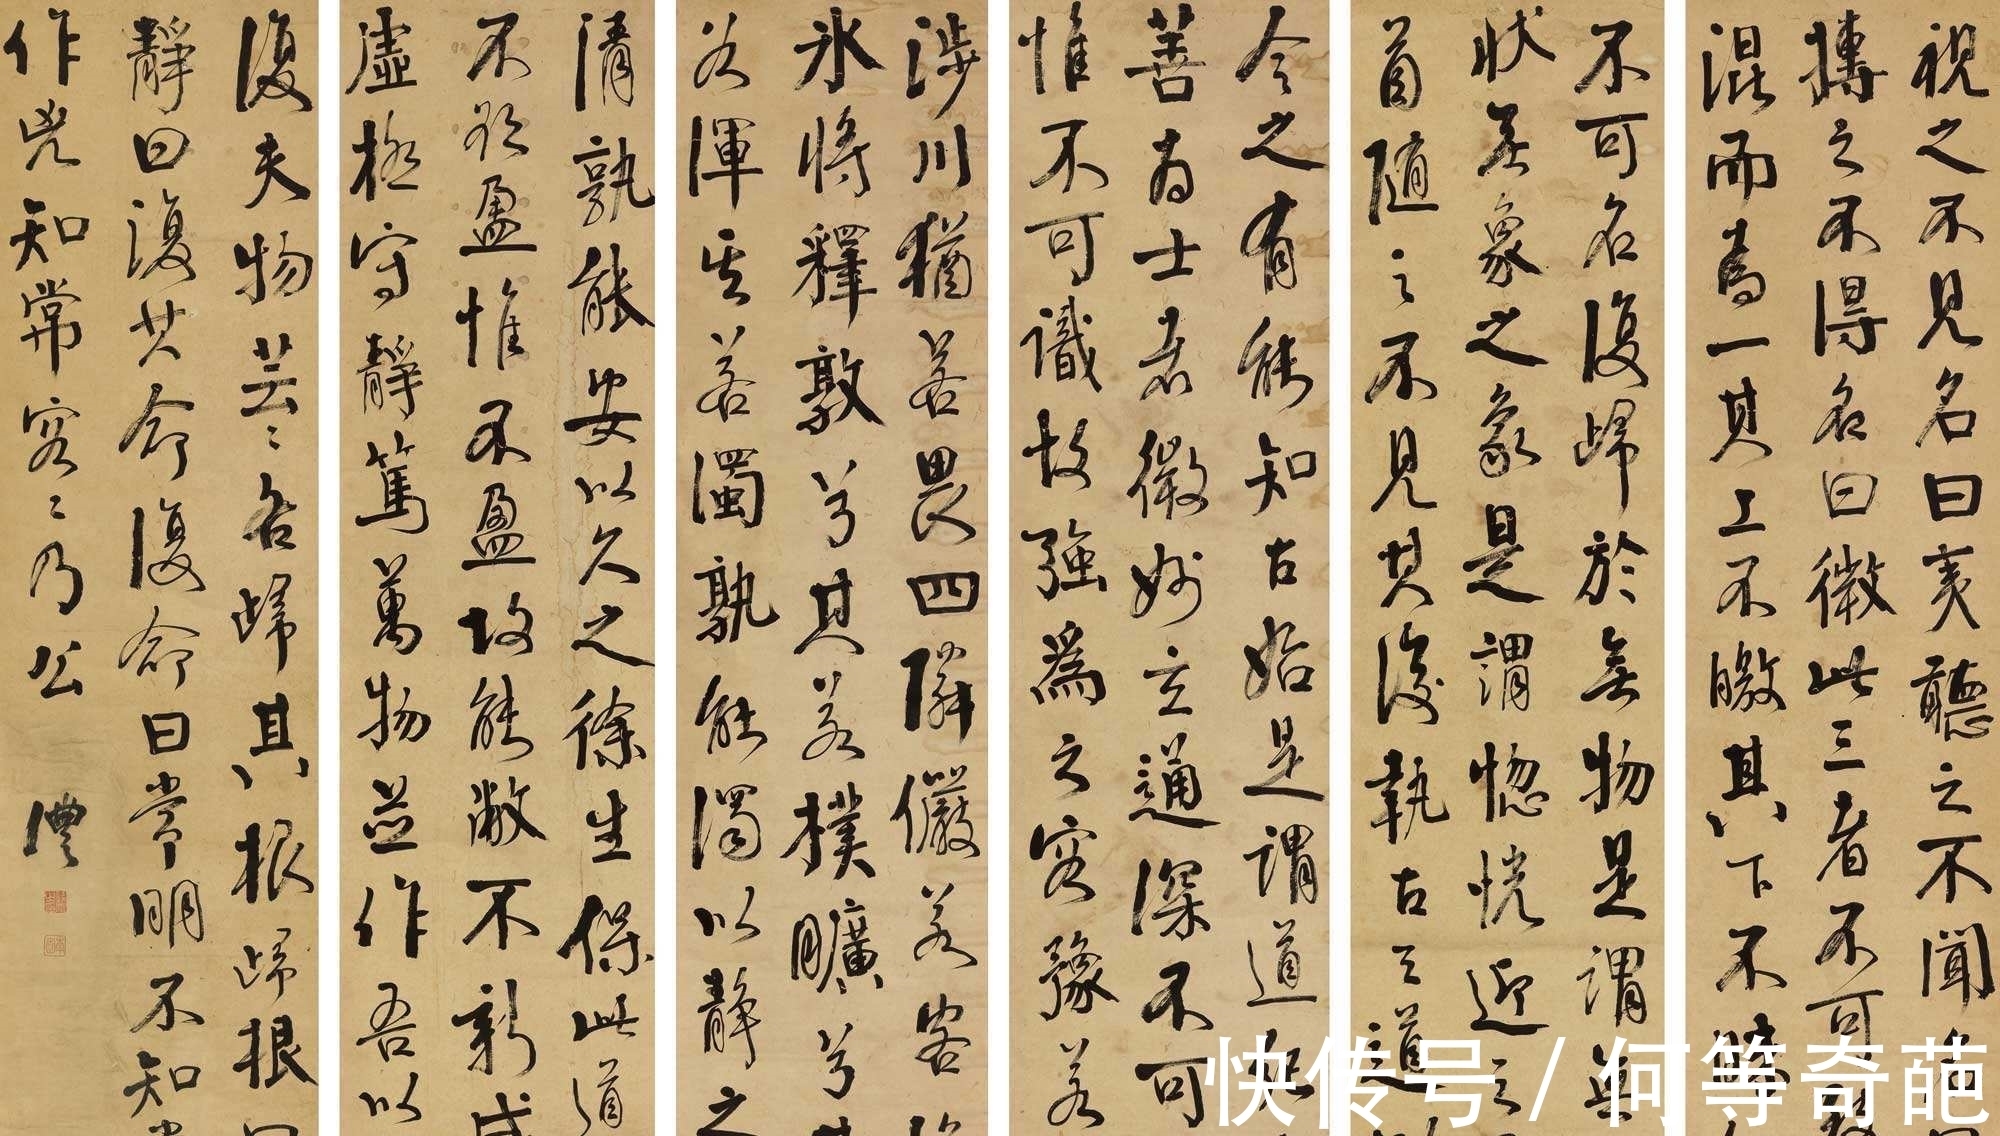 視之不見名曰夷聽之不聞名
搏之不得名曰微此三者不可致
混而為一其上不皦其下不昧
不可名復歸於無物是謂無
狀無象之象是謂惚恍迎之
首隨之不見其後執古之道
今之有能知古始是謂道紀
善為士者微妙玄通深不可
惟不可識故強為之容豫若
涉川猶若畏四隣儼若客渙
冰將釋敦兮其若樸曠兮其
若渾其若濁孰能濁以靜之
清孰能安以久之徐生保此道
不欲盈惟不盈故能敝不新成
虛極守靜篤萬物並作吾以
復夫物芸〻各歸其根歸根曰
靜曰復其命復命曰常明不知常
作凶知常容〻乃公
澧
快传号 / 何等奇葩